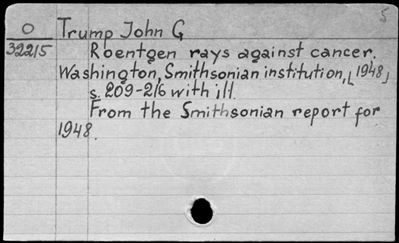 5
O Trump John G
32215 Roentgen rays against cancer.
Washington, Smithsonian institution, [1948]
s. 209-216 with ill.
From the Smithsonian report for
1948.